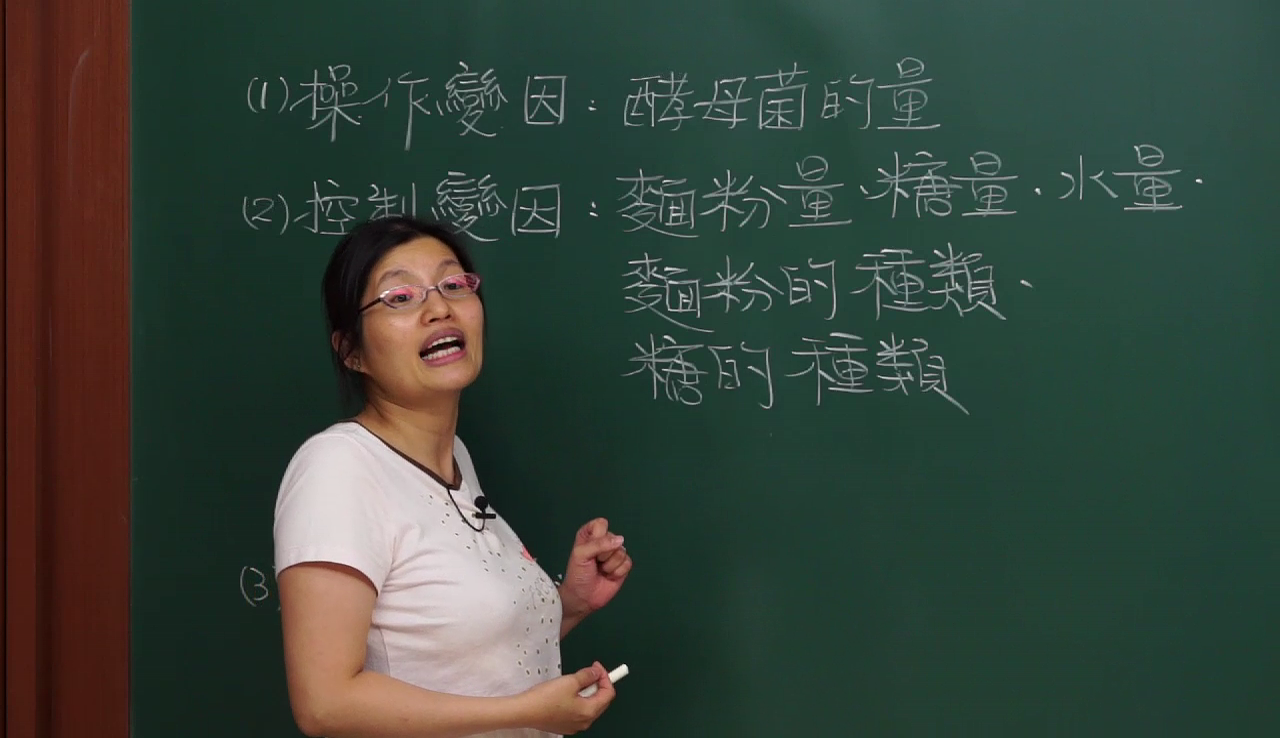 (1) 操作變因：酵母菌的量
(2) 控制變因：麵粉量、糖量、水量、
麵粉的種類、
糖的種類
(3)